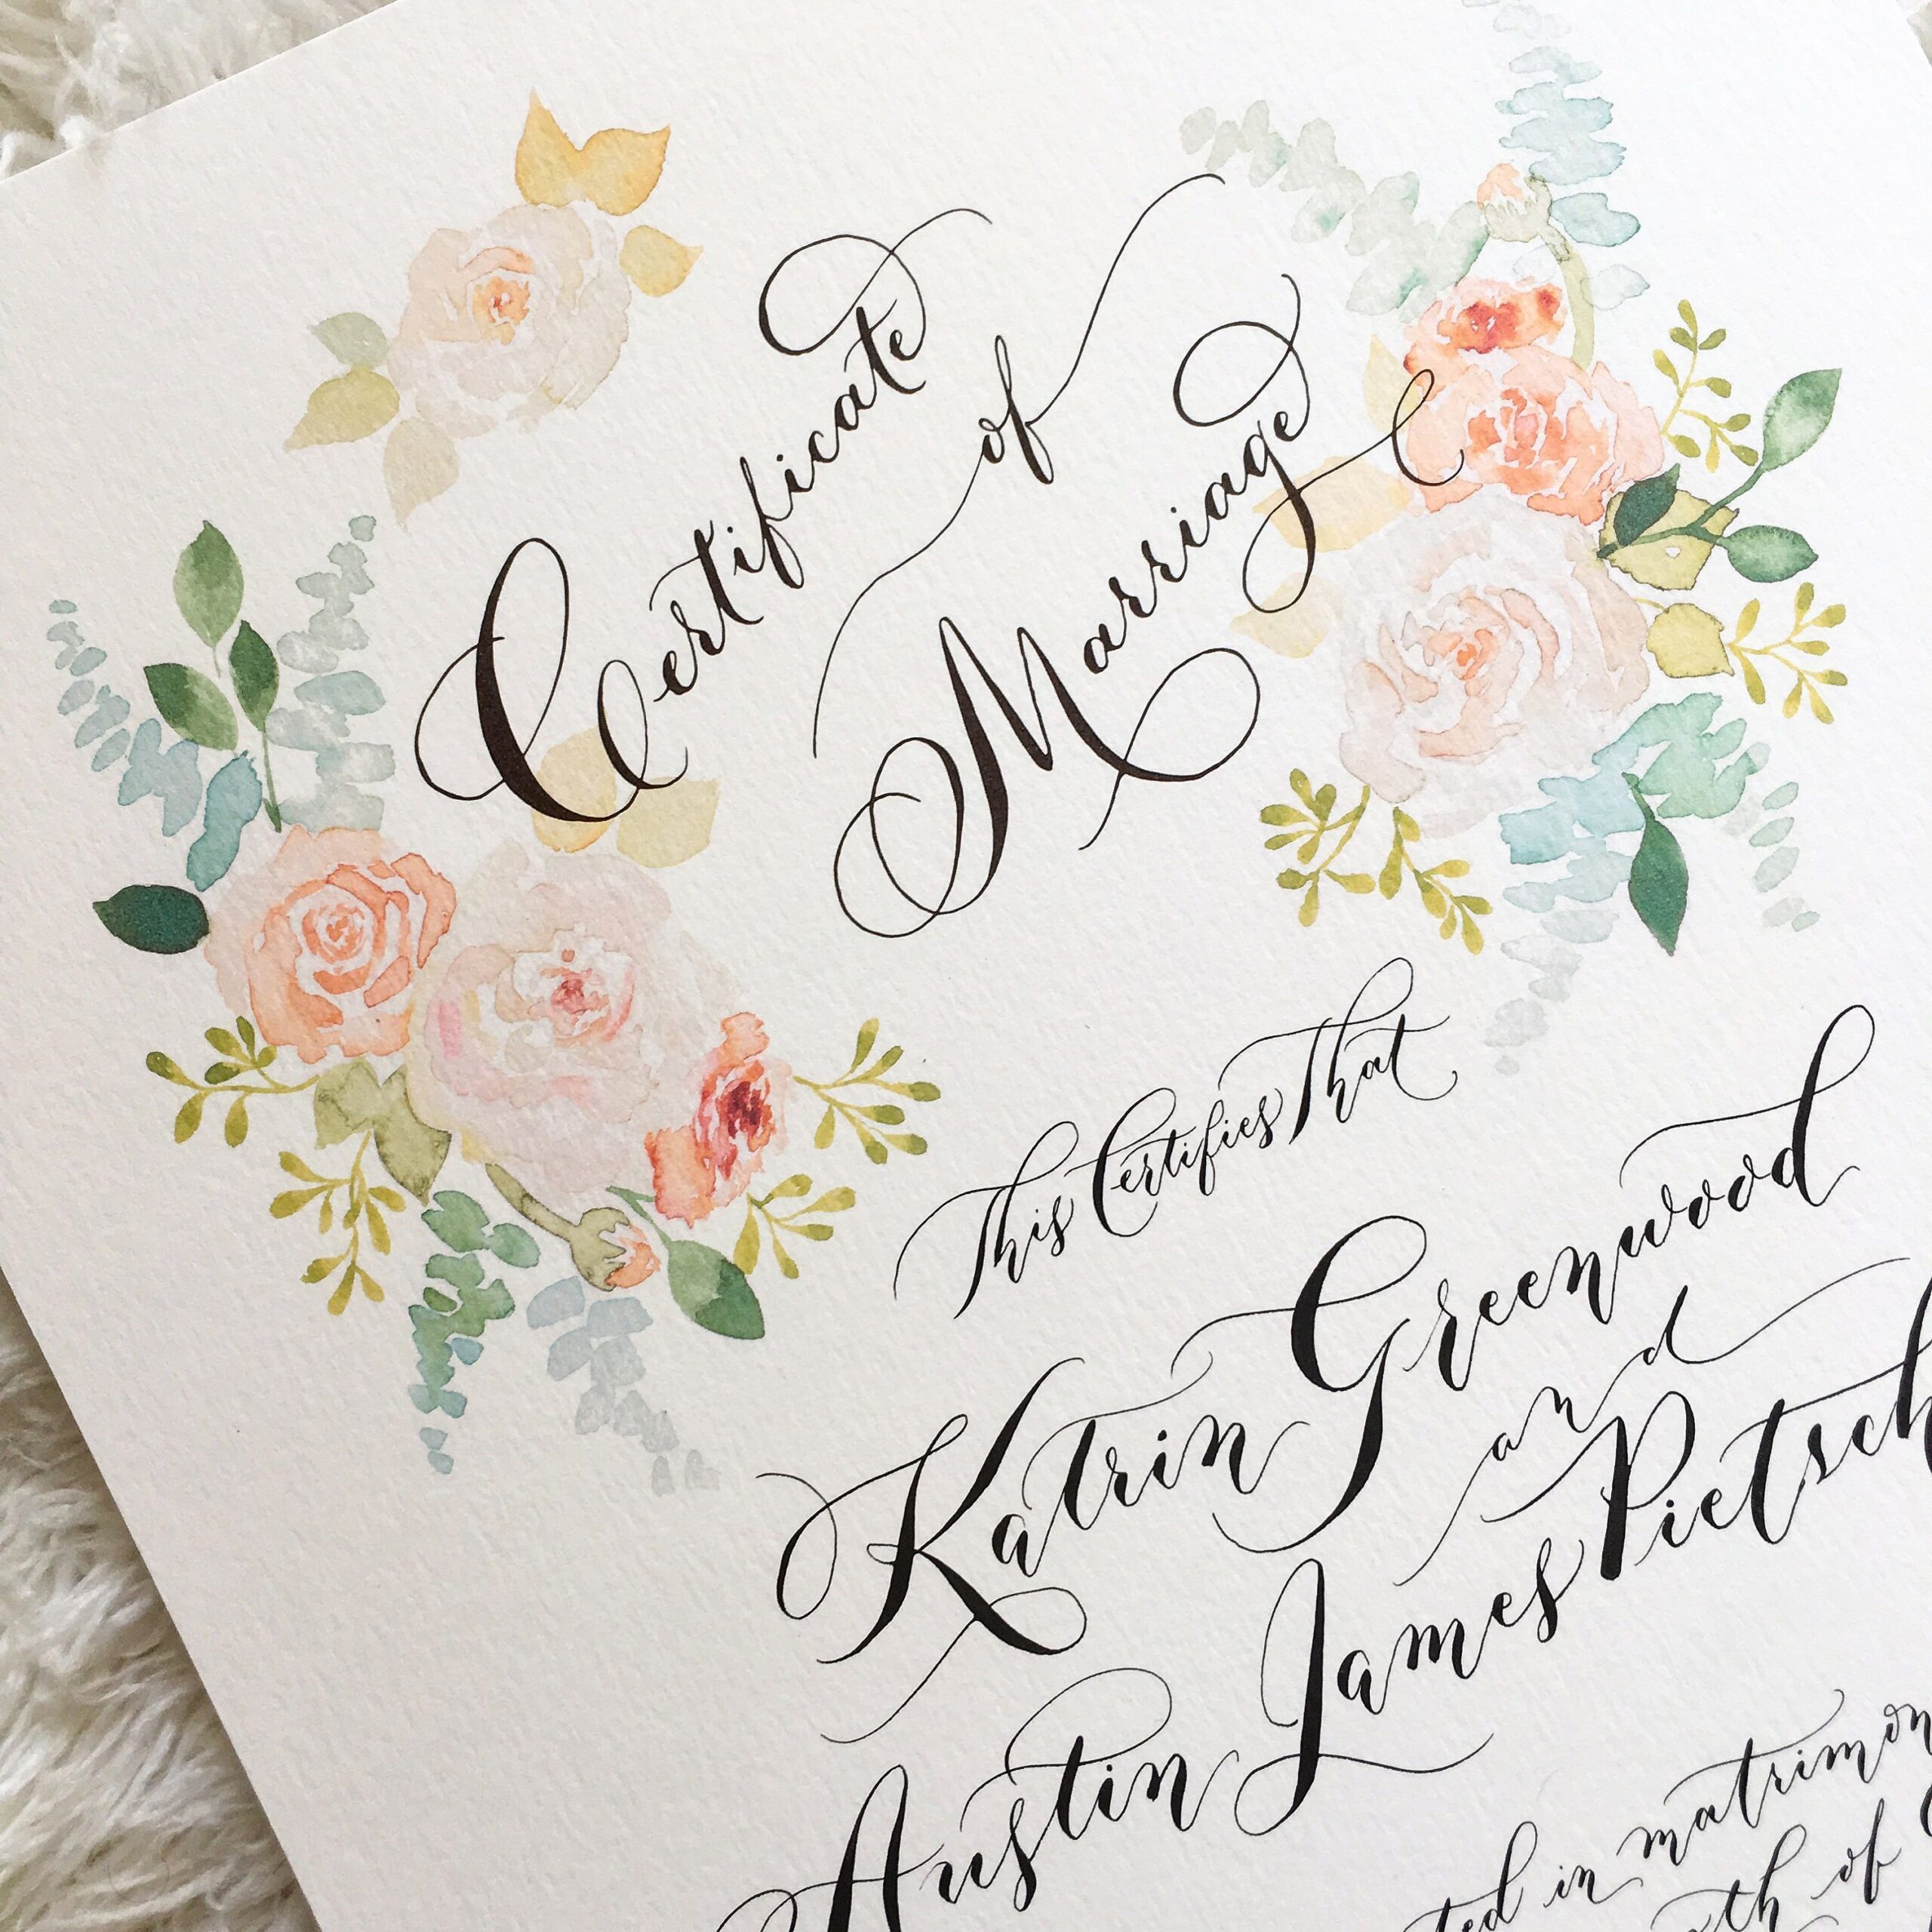 Certificate
of
Marriage
This Certifies That
Katrin Greenwood
and
Austin James Pietsch
in matrimon
of